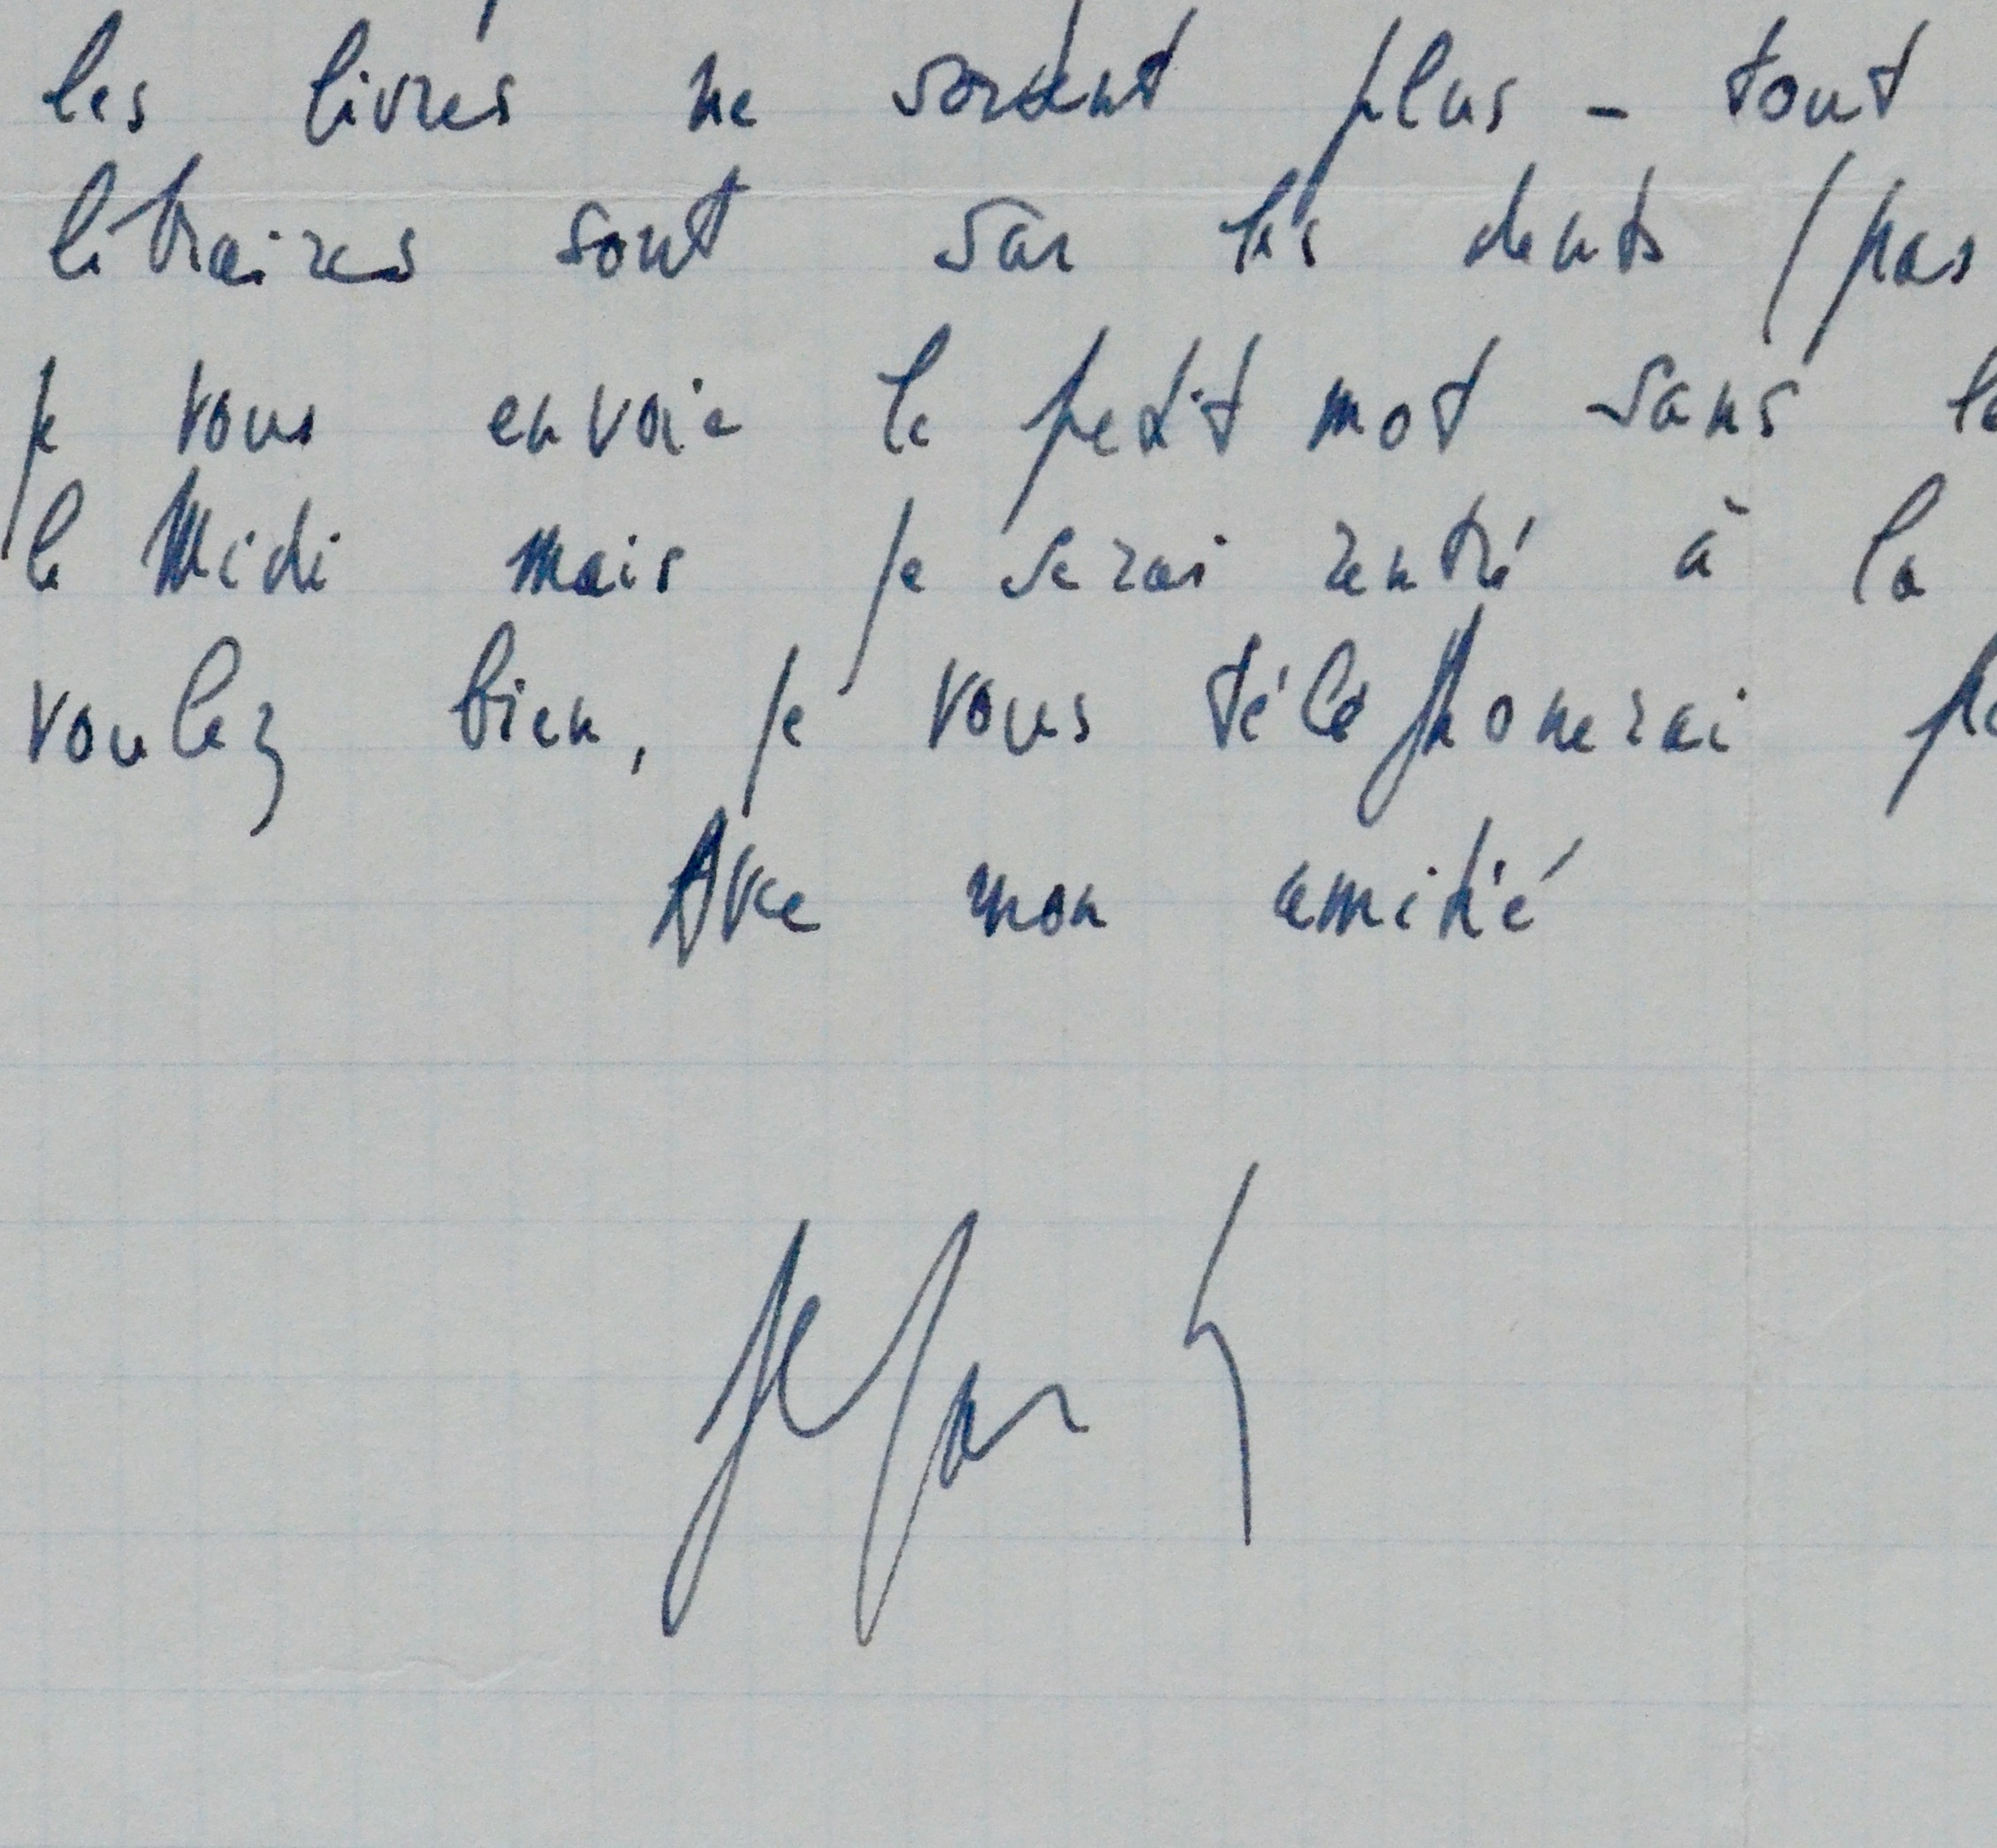 les livres ne sortent plus - tout
libraires sont sur les dents (pas
je vous envoie le petit mot sans
le Midi mais je serai rentré à la
voulez bien, je vous téléphonerai
Avec mon amitié